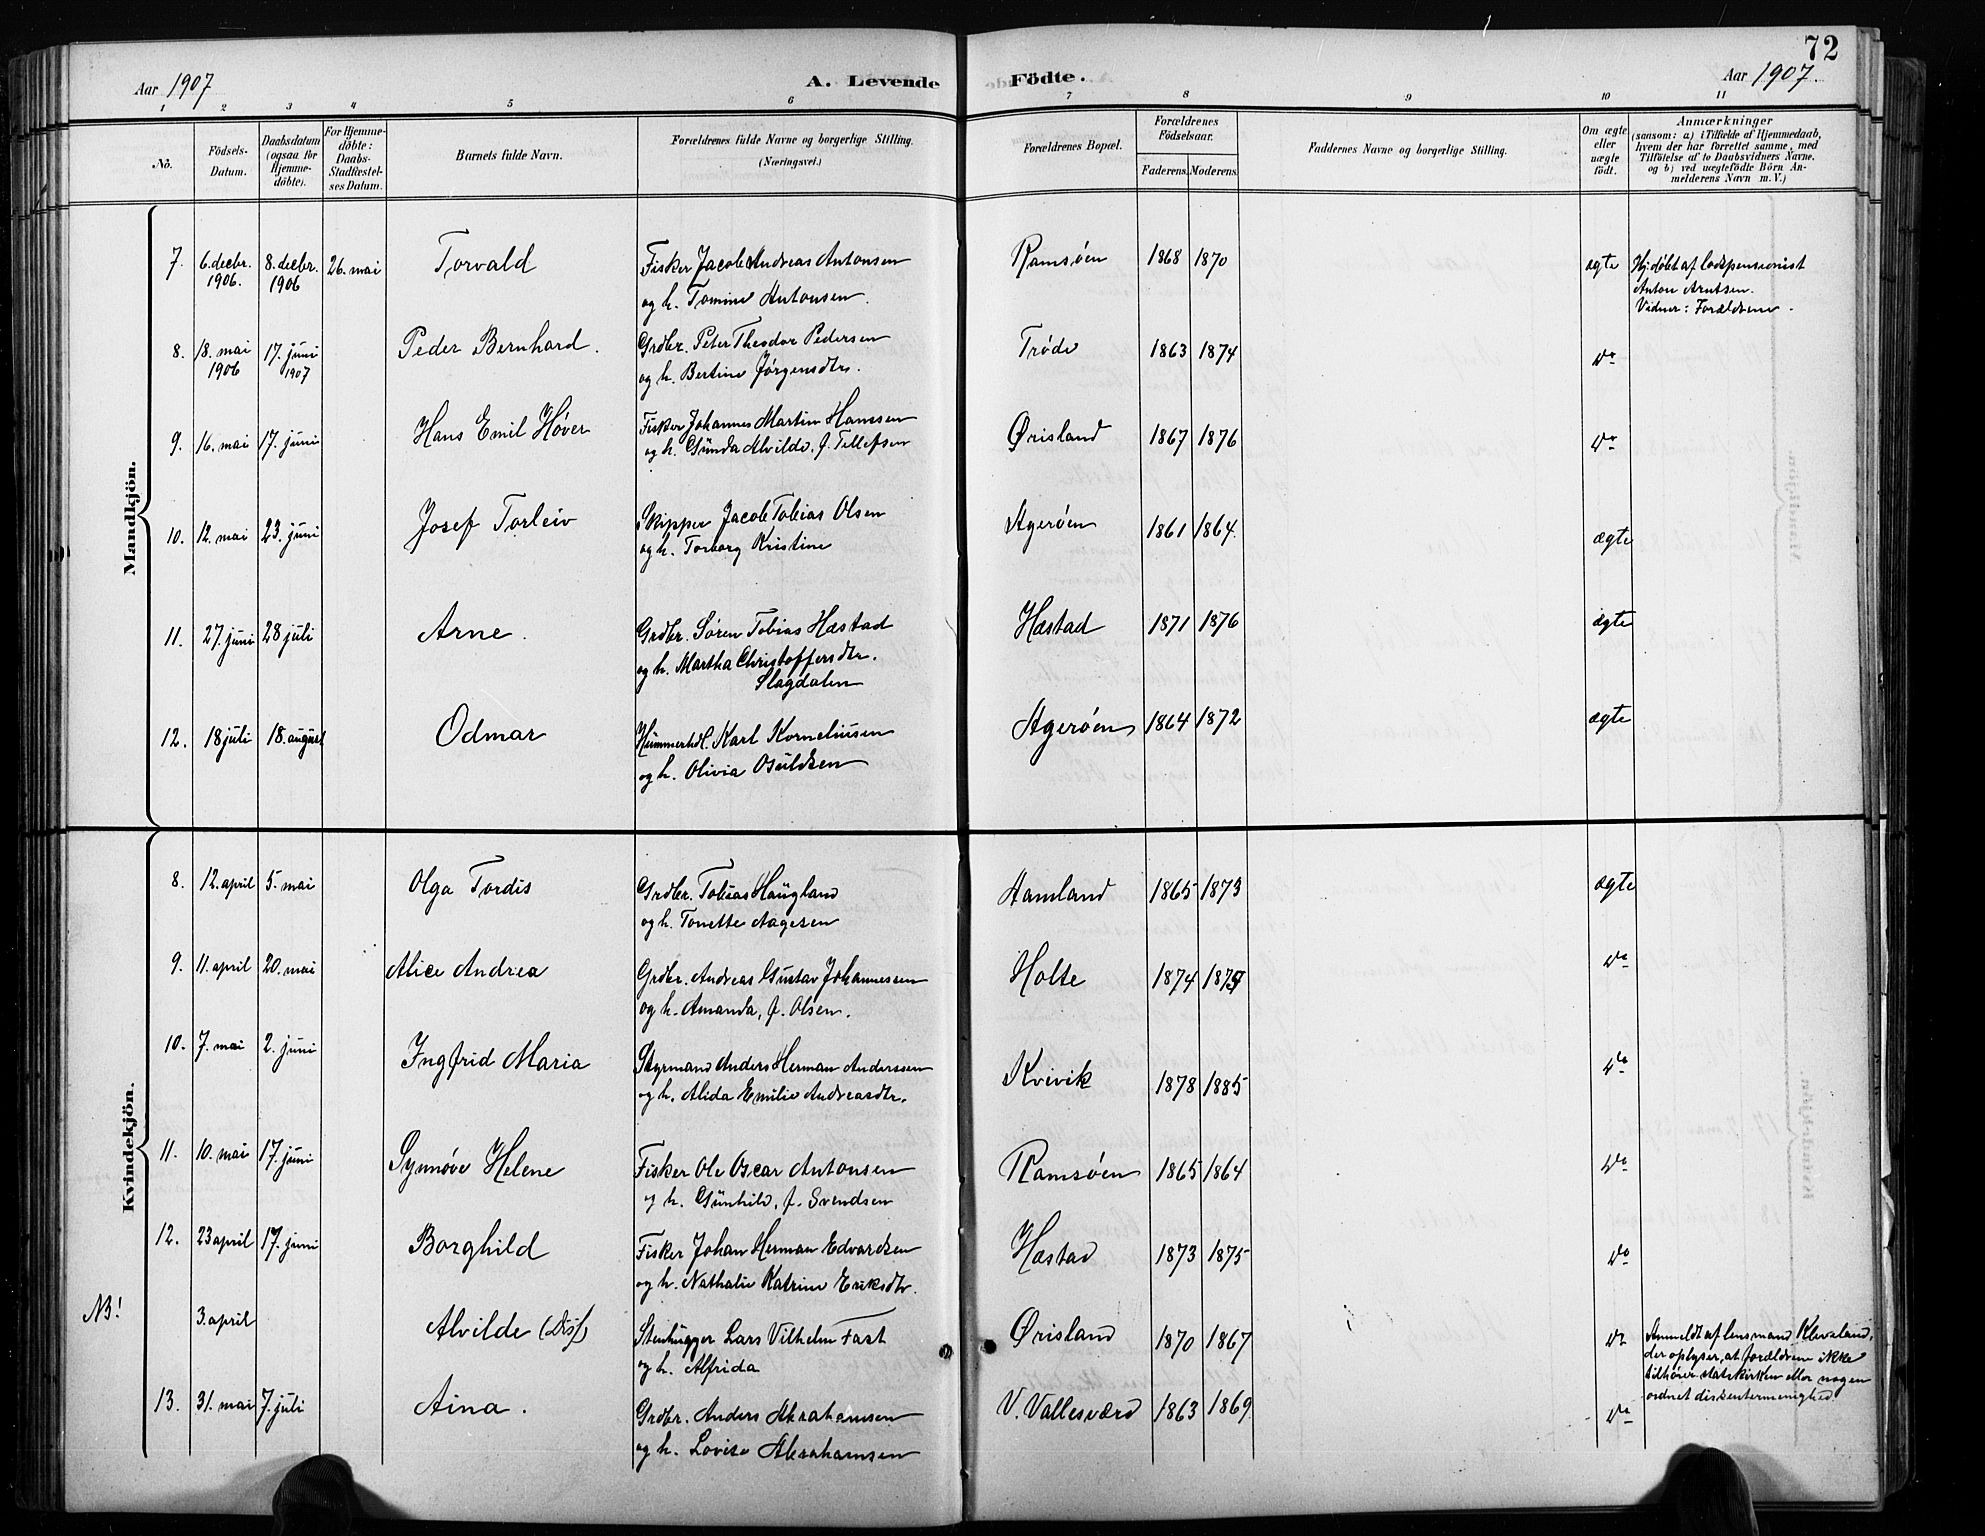 72
Aar 1907
A. Levende Födte.
Aar 1907.
1 2 3 4 5 6 7 8 9 10 11
No.
Födsels-Datum.
Daabsdatum (ogsaa for Hjemmedöbte).
For Hjemmedöbte: Daabs-Stadfæstelses Datum.
Barnets fulde Navn.
Forældrenes fulde Navne og borgerlige Stilling.
(Næringsvei.)
Forældrenes Bopæl.
Forældrenes Födselsaar.
Faderens. Moderens.
Faddernes Navne og borgerlige Stilling.
Om ægte eller uægte födt.
Anmærkninger
(saasom: a) i Tilfælde af Hjemmedaab,
hvem der har forrettet samme, med
Tilföielse af to Daabsvidners Navne,
og b) ved uægtefödte Börn An-
melderens Navn m. V.)
Mandkjön.
7. 6. decbr. 1906. 8. decbr. 1906 26. mai Torvald Fisker Jacob Andreas Antonsen Ramsøen 1868 1870 ægte Hj.døbt af lodspensionist
og h. Tomine Antonsen. Anton Arntsen.
Vidner: Forældrene.
8. 18. mai 1906 17. juni 1907 Peder Bernhard. Grdbr. Peter Theodor Pedersen Trøde 1863 1874 do
og h. Bertine Jørgensdtr.
9. 16. mai 17. juni Hans Emil Høver Fisker Johannes Martin Hanssen Ørisland 1867 1876 do
og h. Gunda Alvilde, f. Tellefsen
10. 12. mai 23. juni Josef Torleiv Skipper Jacob Tobias Olsen Agerøen 1861 1864. ægte
og h. Torborg Kristine
11. 27. juni 28 juli Arne. Grdbr. Søren Tobias Hæstad Hæstad 1871 1876 ægte
og h. Martha Christoffersdtr.
Slagdalen
12. 18 juli 18. august Odmar Hummerhdl. Karl Korneliusen Agerøen 1864 1872 ægte
og h. Olivia Osuldsen
Kvindekjön.
8. 12. april 5. mai Olga Tordis Grdbr. Tobias Haugland Aamland 1865 1873 ægte
og h. Tonette Aagesen
9. 11. april 20. mai Alice Andrea Grdbr. Andreas Gustav Johannessen Holte 1874 do
og h. Amanda, f. Olsen.
10. 7. mai 2. juni Ingfrid Maria Styrmand Anders Herman Anderssen Kvivik 1878 1885 do
og h. Alida Emilie Andreasdtr.
11. 10. mai 17. juni Synnøve Helene Fisker Ole Oscar Antonsen Ramsøen 1865 1864 do
og h. Gunhild, f. Svendsen
12. 23 april 17. juni Borghild Fisker Johan Herman Edvardsen Hæstad 1873 1875 do
og h. Nathalie Katrine Eriksdtr.
NB! 3. april Alvilde (Diss) Stenhugger Lars Vilhelm Fast Ørisland 1870 1867 do Anmeldt af lensmand Kleveland,
og h. Alfrida der oplyser, at forældrene ikke
tilhører statskirken eller nogen
ordnet dissentermenighed
13. 31. mai 7. juli Aina. Grdbr. Anders Abrahamsen V. Vallesværd 1863 1869 do
og h. Lovise Abrahamsen